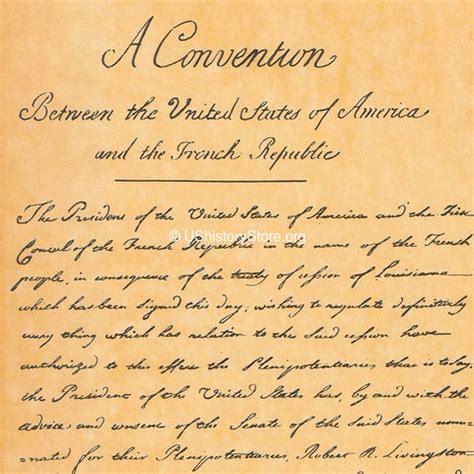 A Convention
Between the United States of America
and the French Republic
The President of the United States of America and the First
Consul of the French Republic in the name of the French
© UShistoryStore.org
people, in consequence of the treaty of cession of Louisiana
which has been signed this day; wishing to regulate definitively
every thing which has relation to the Said cession have
authorized to this effect the Plenipotentiaries that is to say,
the President of the United States has, by and with the
advice and consent of the Senate of the Said States nom-
inated for their Plenipotentiaries, Robert R. Livingston